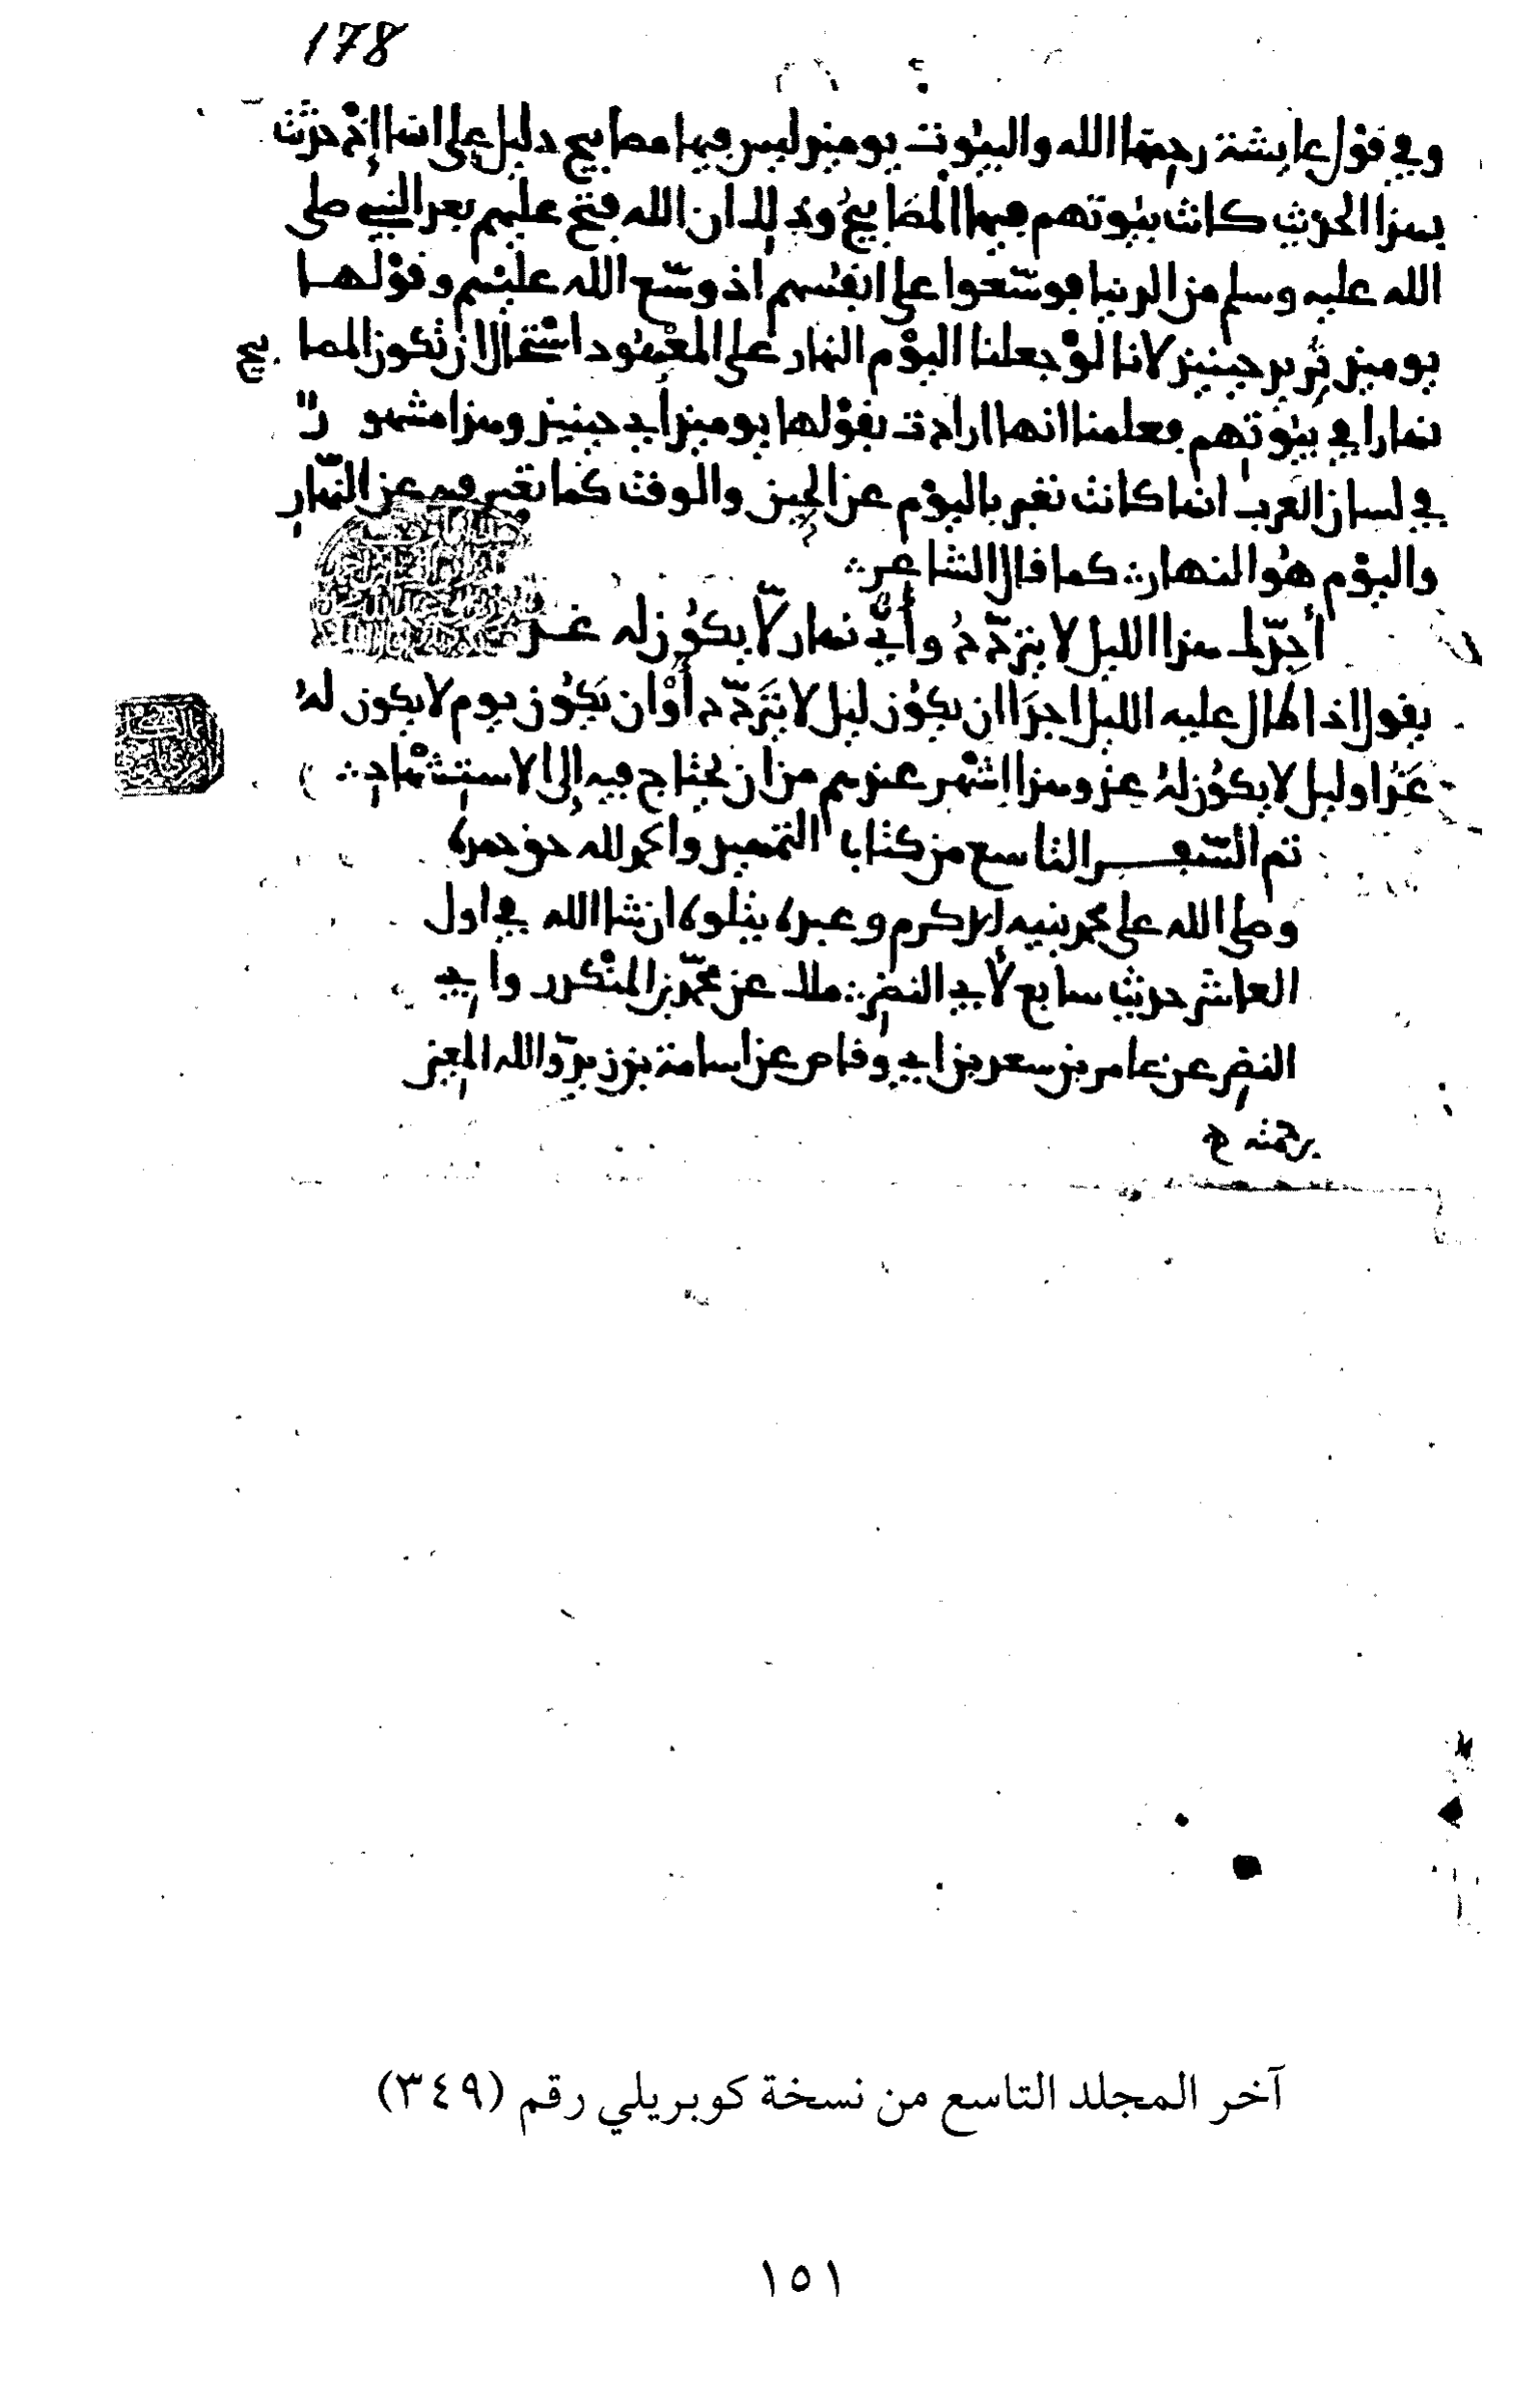 178
وفي قول عايشة رحمها الله والبيوت يومئذ ليس فيها مصابيح دليل على انها إذ حدثت
بهذا الحديث كانت بيوتهم فيها المصابيح وذلك ان الله فتح عليهم بعد النبي صلى
الله عليه وسلم من الدنيا فوسّعوا على انفسهم اذ وسّع الله عليهم وقولها
يومئذ تريد حينئذ لانا لو جعلنا اليوم النهار على المعهود استحال ان تكون المصابيح
نهارا في بيوتهم فعلمنا انها ارادت بقولها يومئذ أي حينئذ وهذا مشهور
في لسان العرب انها كانت تعبر باليوم عن الحين والوقت كما تعبر به عن النهار
واليوم هو النهار كما قال الشاعر
أجدّك هذا الليل لا يتردّد وأيّ نهار لا يكون له غد
يقول اذا طال عليه الليل اجدا ان يكون ليل لا يتردّد أو ان يكون يوم لا يكون له
غد او ليل لا يكون له غد وهذا اشهر عندهم من ان يحتاج فيه إلى الاستشهاد
تم السفر التاسع من كتاب التمهيد والحمد لله حق حمده
وصلى الله على محمد نبيه الاكرم وعبده يتلوه ان شا الله في اول
العاشر حديث سابع لأبي النضر ملك عن محمّد بن المنكدر وابي
النضر عن عامر بن سعد بن ابي وقاص عن اسامة بن زيد والله المعين
برحمته
آخر المجلد التاسع من نسخة كوبريلي رقم (٣٤٩)
١٥١